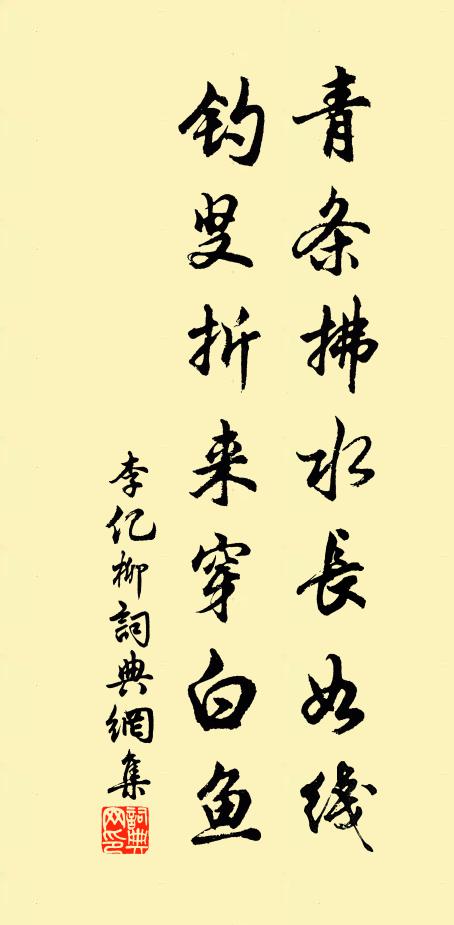 青条拂水長如线
钓叟折来穿白鱼
李亿柳詞典網集
詞典网印